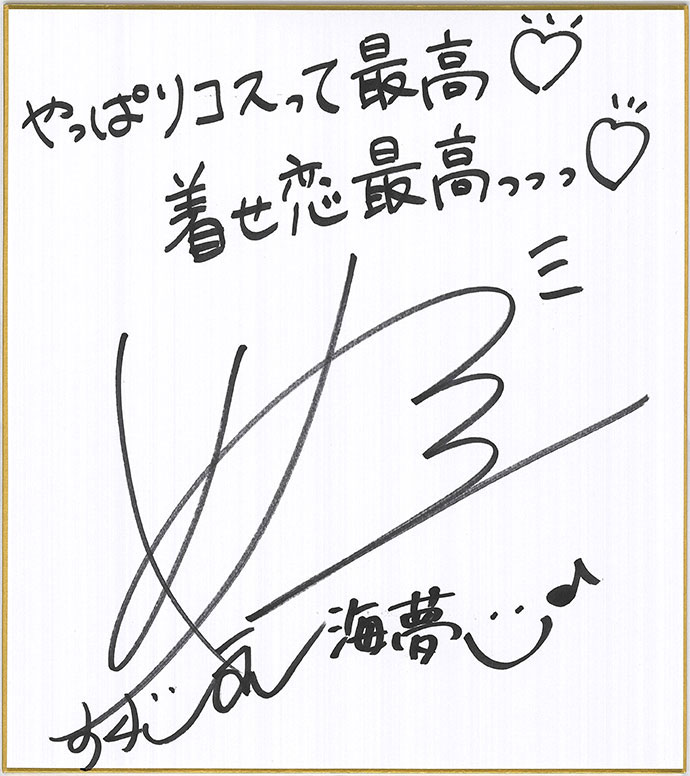 やっぱりコスって最高♡
着せ恋最高っっっ♡
海夢